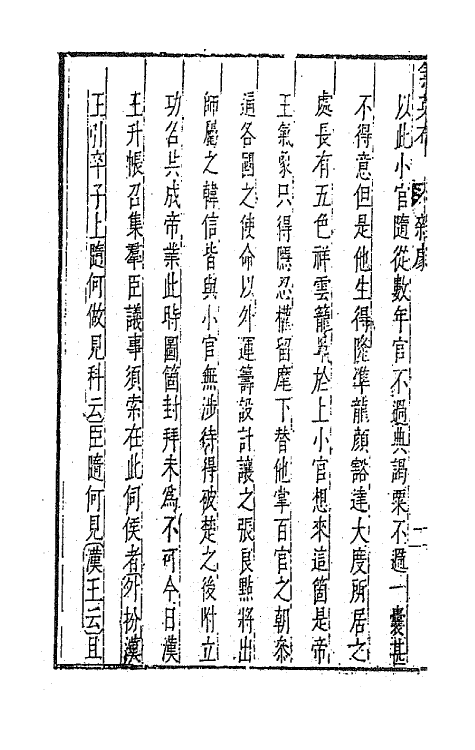 以此小官隨從數年官不過典謁粟不過一囊甚
不得意但是他生得隆準龍顏豁達大度所居之
處長有五色祥雲籠罩於上小官想來這箇是帝
王氣象只得隱忍權留麾下替他掌百官之朝參
通各國之使命以外運籌設計讓之張良點將出
師屬之韓信皆與小官無涉待得破楚之後附立
功名共成帝業此時圖箇封拜未為不可今日漢
王升帳召集羣臣議事須索在此伺侯者外扮漢
王引卒子上隨何做見科云臣隨何見漢王云且